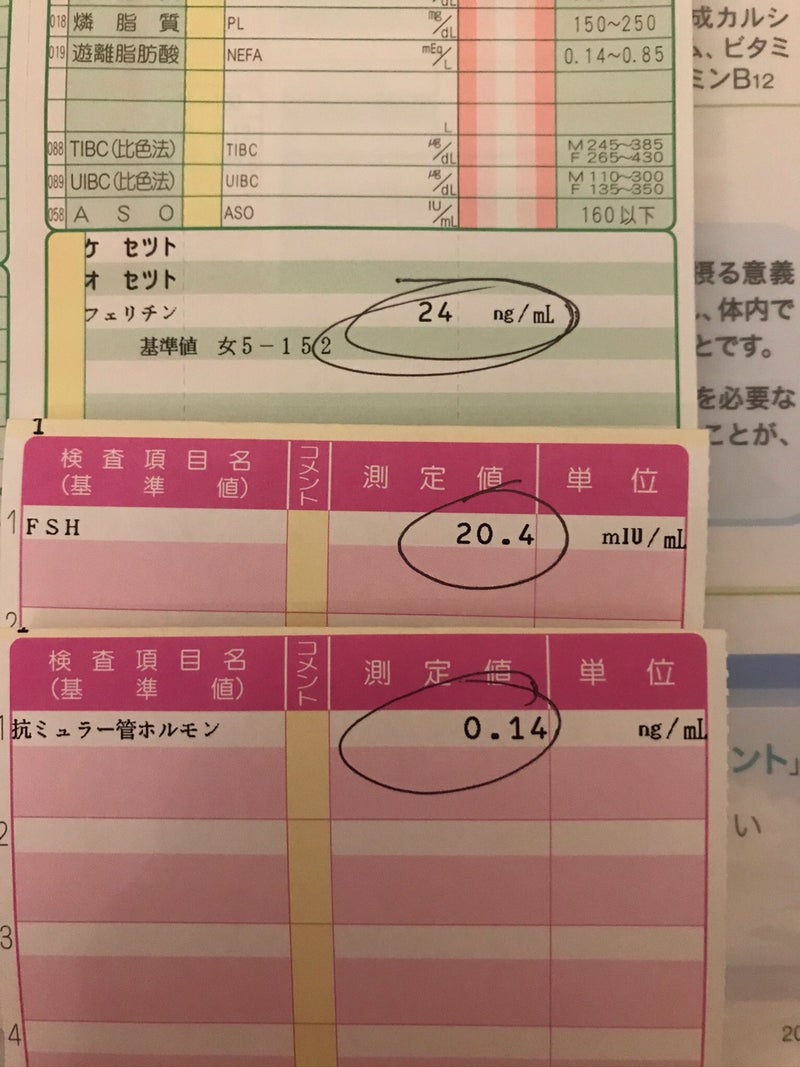 018 燐脂質 PL mg/dL 150~250
019 遊離脂肪酸 NEFA mEq/L 0.14~0.85
L
088 TIBC(比色法) TIBC μg/dL M 245~385
F 265~430
089 UIBC(比色法) UIBC μg/dL M 110~300
F 135~350
058 ASO ASO IU/mL 160以下
ケ セツト
オ セツト
フェリチン 24 ng/mL
基準値 女5-152
1
検査項目名
(基準値) コメント 測定値 単位
1 FSH 20.4 mIU/mL
2
検査項目名
(基準値) コメント 測定値 単位
1 抗ミュラー管ホルモン 0.14 ng/mL
2
3
4
成カルシ
、ビタミ
ミンB12
摂る意義
、体内で
とです。
を必要な
ことが、
ント」
い
20